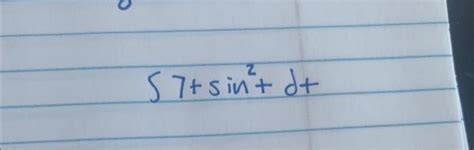 ∫ 7t sin² t dt